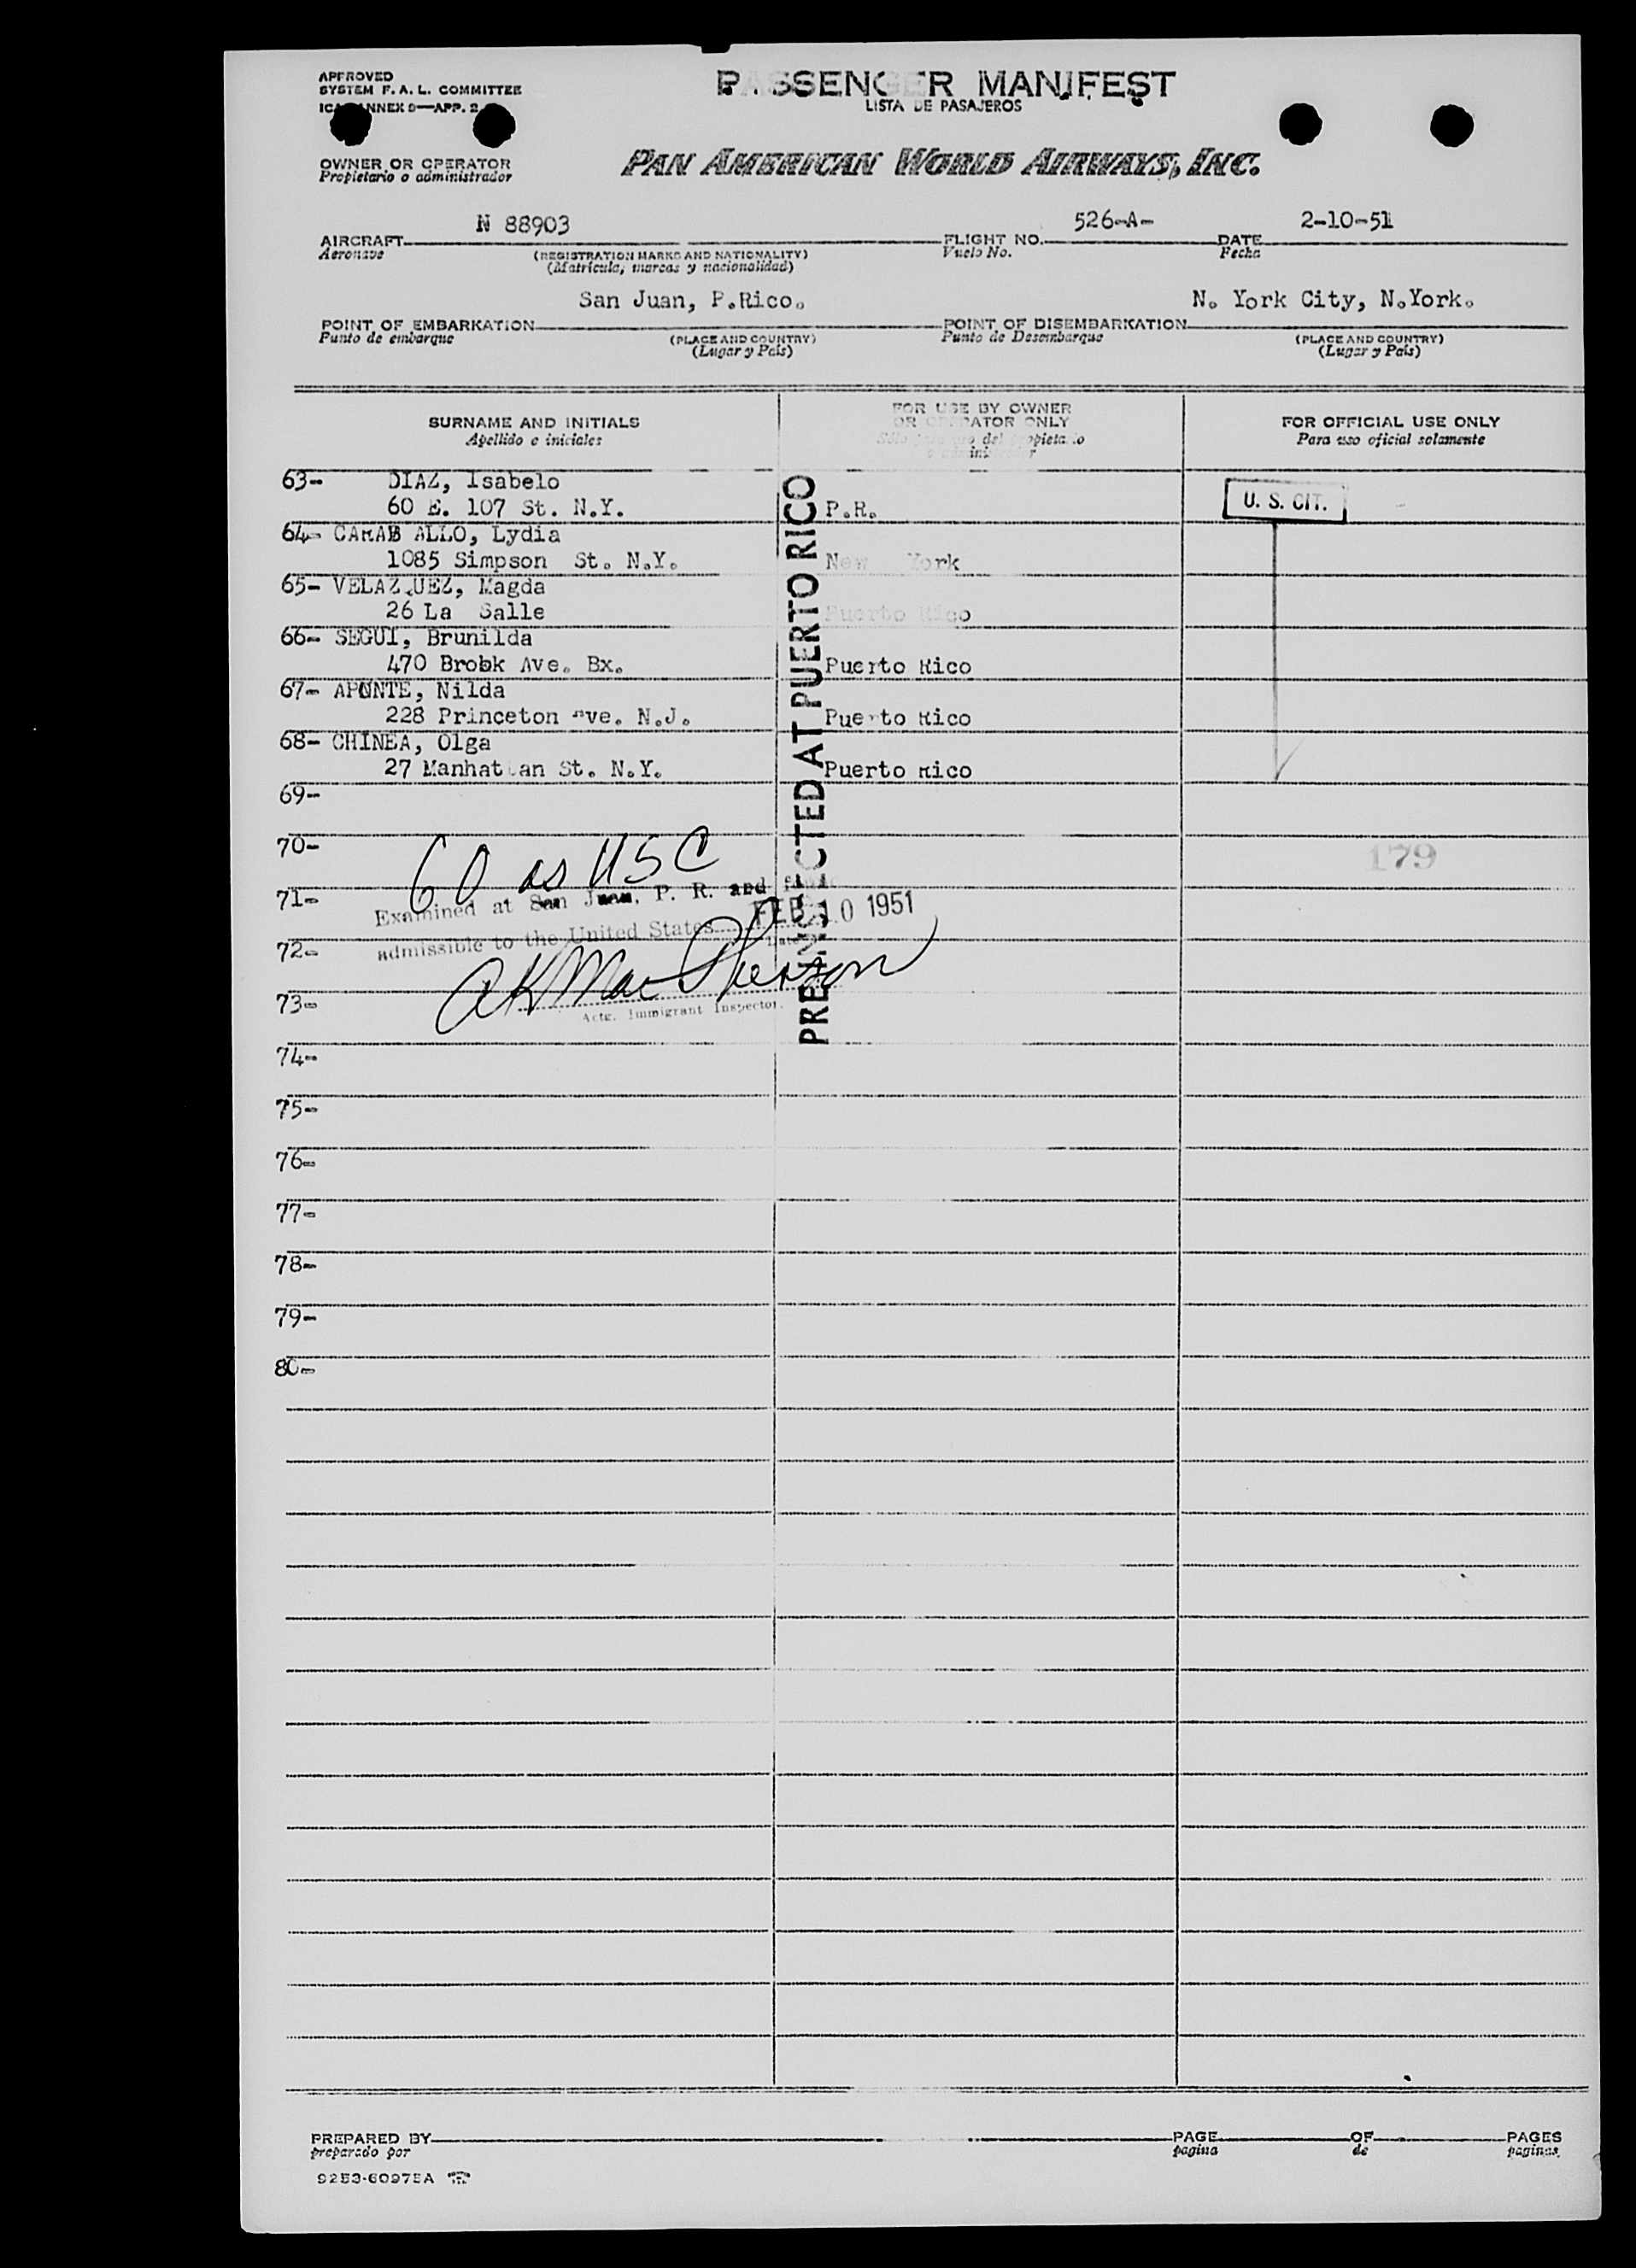 APPROVED
SYSTEM F. A. L. COMMITTEE
ICAO ANNEX 9—APP. 2
PASSENGER MANIFEST
LISTA DE PASAJEROS
OWNER OR OPERATOR
Propietario o administrador
PAN AMERICAN WORLD AIRWAYS, INC.
AIRCRAFT N 88903 FLIGHT NO. 526-A- DATE 2-10-51
Aeronave (REGISTRATION MARKS AND NATIONALITY) Vuelo No. Fecha
(Matrícula, marcas y nacionalidad)
San Juan, P.Rico. N. York City, N.York.
POINT OF EMBARKATION POINT OF DISEMBARKATION
Punto de embarque (PLACE AND COUNTRY) Punto de Desembarque (PLACE AND COUNTRY)
(Lugar y País) (Lugar y País)
SURNAME AND INITIALS
Apellido e iniciales
FOR USE BY OWNER
OR OPERATOR ONLY
Sólo para uso del propietario
o administrador
FOR OFFICIAL USE ONLY
Para uso oficial solamente
63- DIAZ, Isabelo
60 E. 107 St. N.Y. P.R. U. S. CIT.
64- CARAB ALLO, Lydia
1085 Simpson St. N.Y. New York
65- VELAZQUEZ, Magda
26 La Salle Puerto Rico
66- SEGUI, Brunilda
470 Brobk Ave. Bx. Puerto Rico
67- APONTE, Nilda
228 Princeton Ave. N.J. Puerto Rico
68- CHINEA, Olga
27 Manhattan St. N.Y. Puerto Rico
PRE-INSPECTED AT PUERTO RICO
69-
70- 179
60 as USC
71- Examined at San Juan, P. R. and found
FEB 10 1951
72- admissible to the United States
Date
AK MacPherson
73- Actg. Immigrant Inspector.
74-
75-
76-
77-
78-
79-
80-
PREPARED BY PAGE OF PAGES
preparado por pagina de paginas
9253-60975A